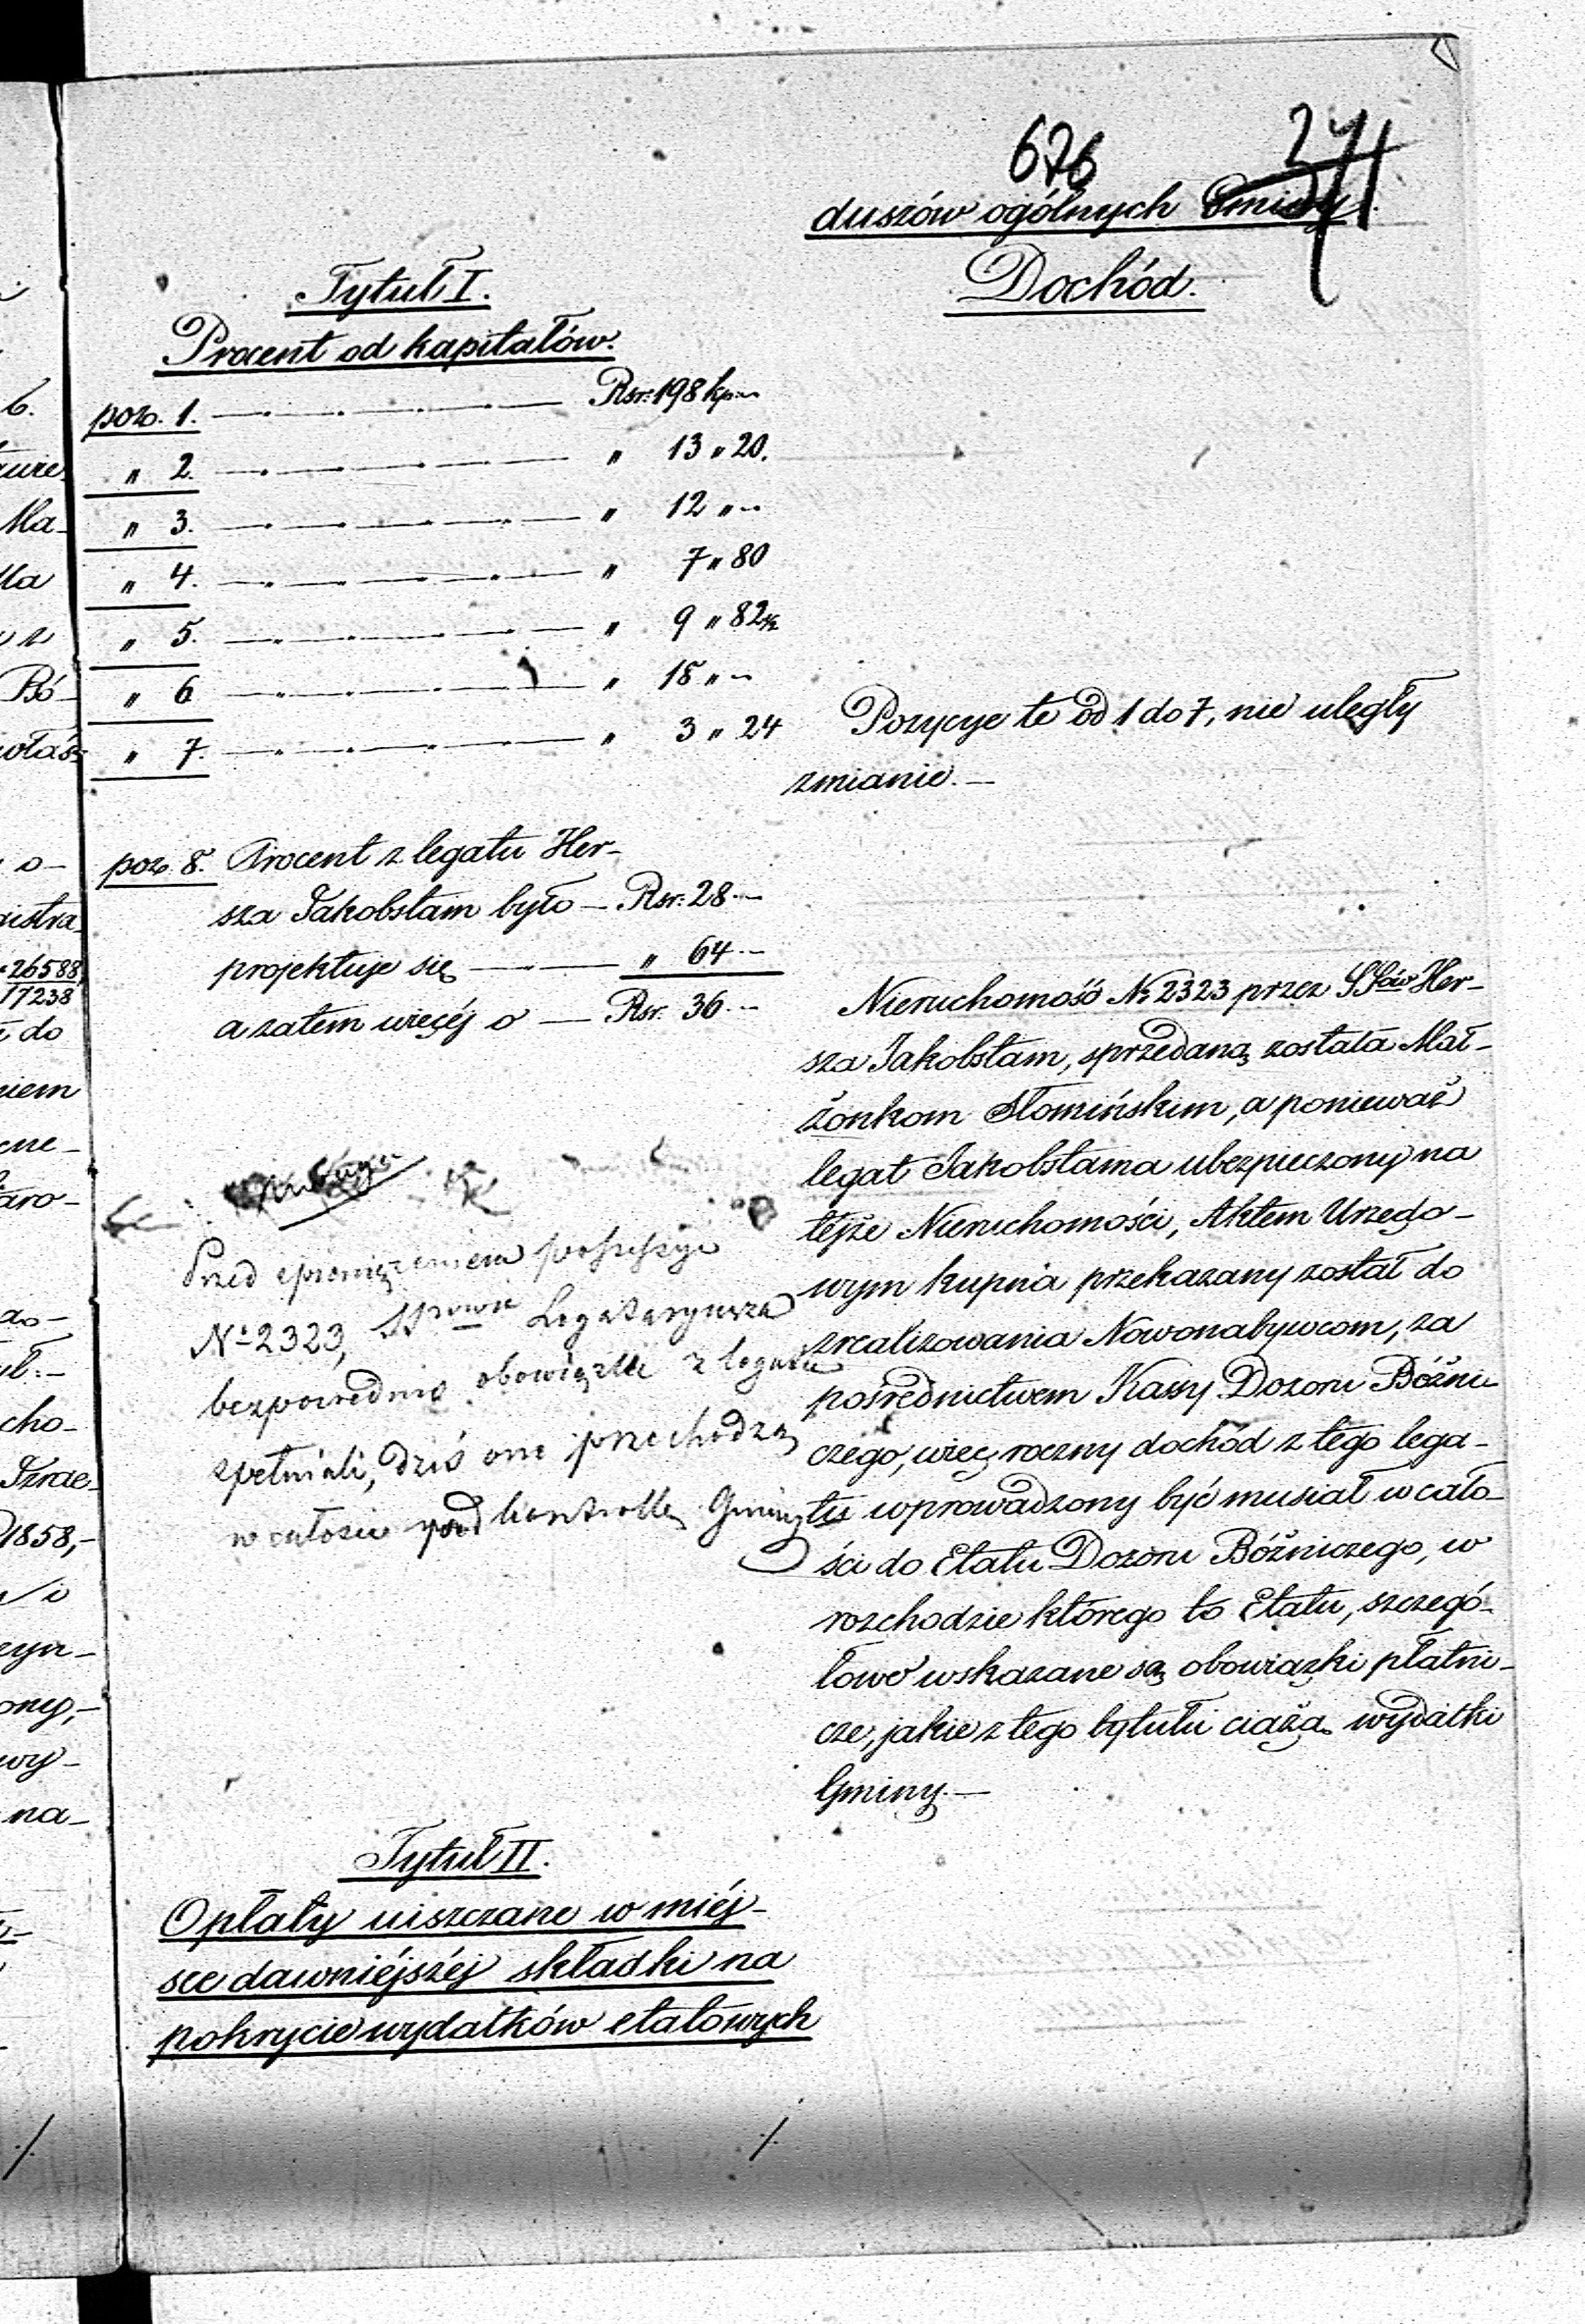 676
271
duszów ogólnych Gminy.
Dochód.
Tytuł I.
Procent od kapitałów.
poz. 1. Rsr: 198 kp. „
„ 2. „ 13 „ 20.
„ 3. „ 12 „ „
„ 4. „ 7 „ 80
„ 5. „ 9 „ 82½
„ 6 „ 18 „ „
„ 7. „ 3 „ 24
Pozycye te od 1 do 7, nie uległy
zmianie. —
poz. 8. Procent z legatu Her-
sza Jakobstam było — Rsr: 28 „
projektuje się — „ 64 „
a zatem więcéj o — Rsr. 36 „
Nieruchomość № 2323 przez SSów Her-
sza Jakobstam, sprzedaną została Mał-
żonkom Słomińskim, a ponieważ
legat Jakobstama ubezpieczony na
tejże Nieruchomości, Aktem Urzędo-
wym kupna przekazany został do
zrealizowania Nowonabywcom, za
pośrednictwem Kassy Dozoru Bóżni-
czego, więc roczny dochód z tego lega-
tu wprowadzony być musiał w cało-
ści do Etatu Dozoru Bóżniczego, w
rozchodzie którego to Etatu, szczegó-
łowo wskazane są obowiązki płatni-
cze, jakie z tego tytułu ciążą wydatki
Gminy. —
Przed spieniężeniem possessyi
№ 2323, Legataryusza
bezpośrednio obowiązki z legatu
spełniali, dziś one przechodzą
w całości pod kontrollę Gminy
Tytuł II.
Opłaty uiszczane w miéj-
sce dawniéjszéj składki na
pokrycie wydatków etatowych